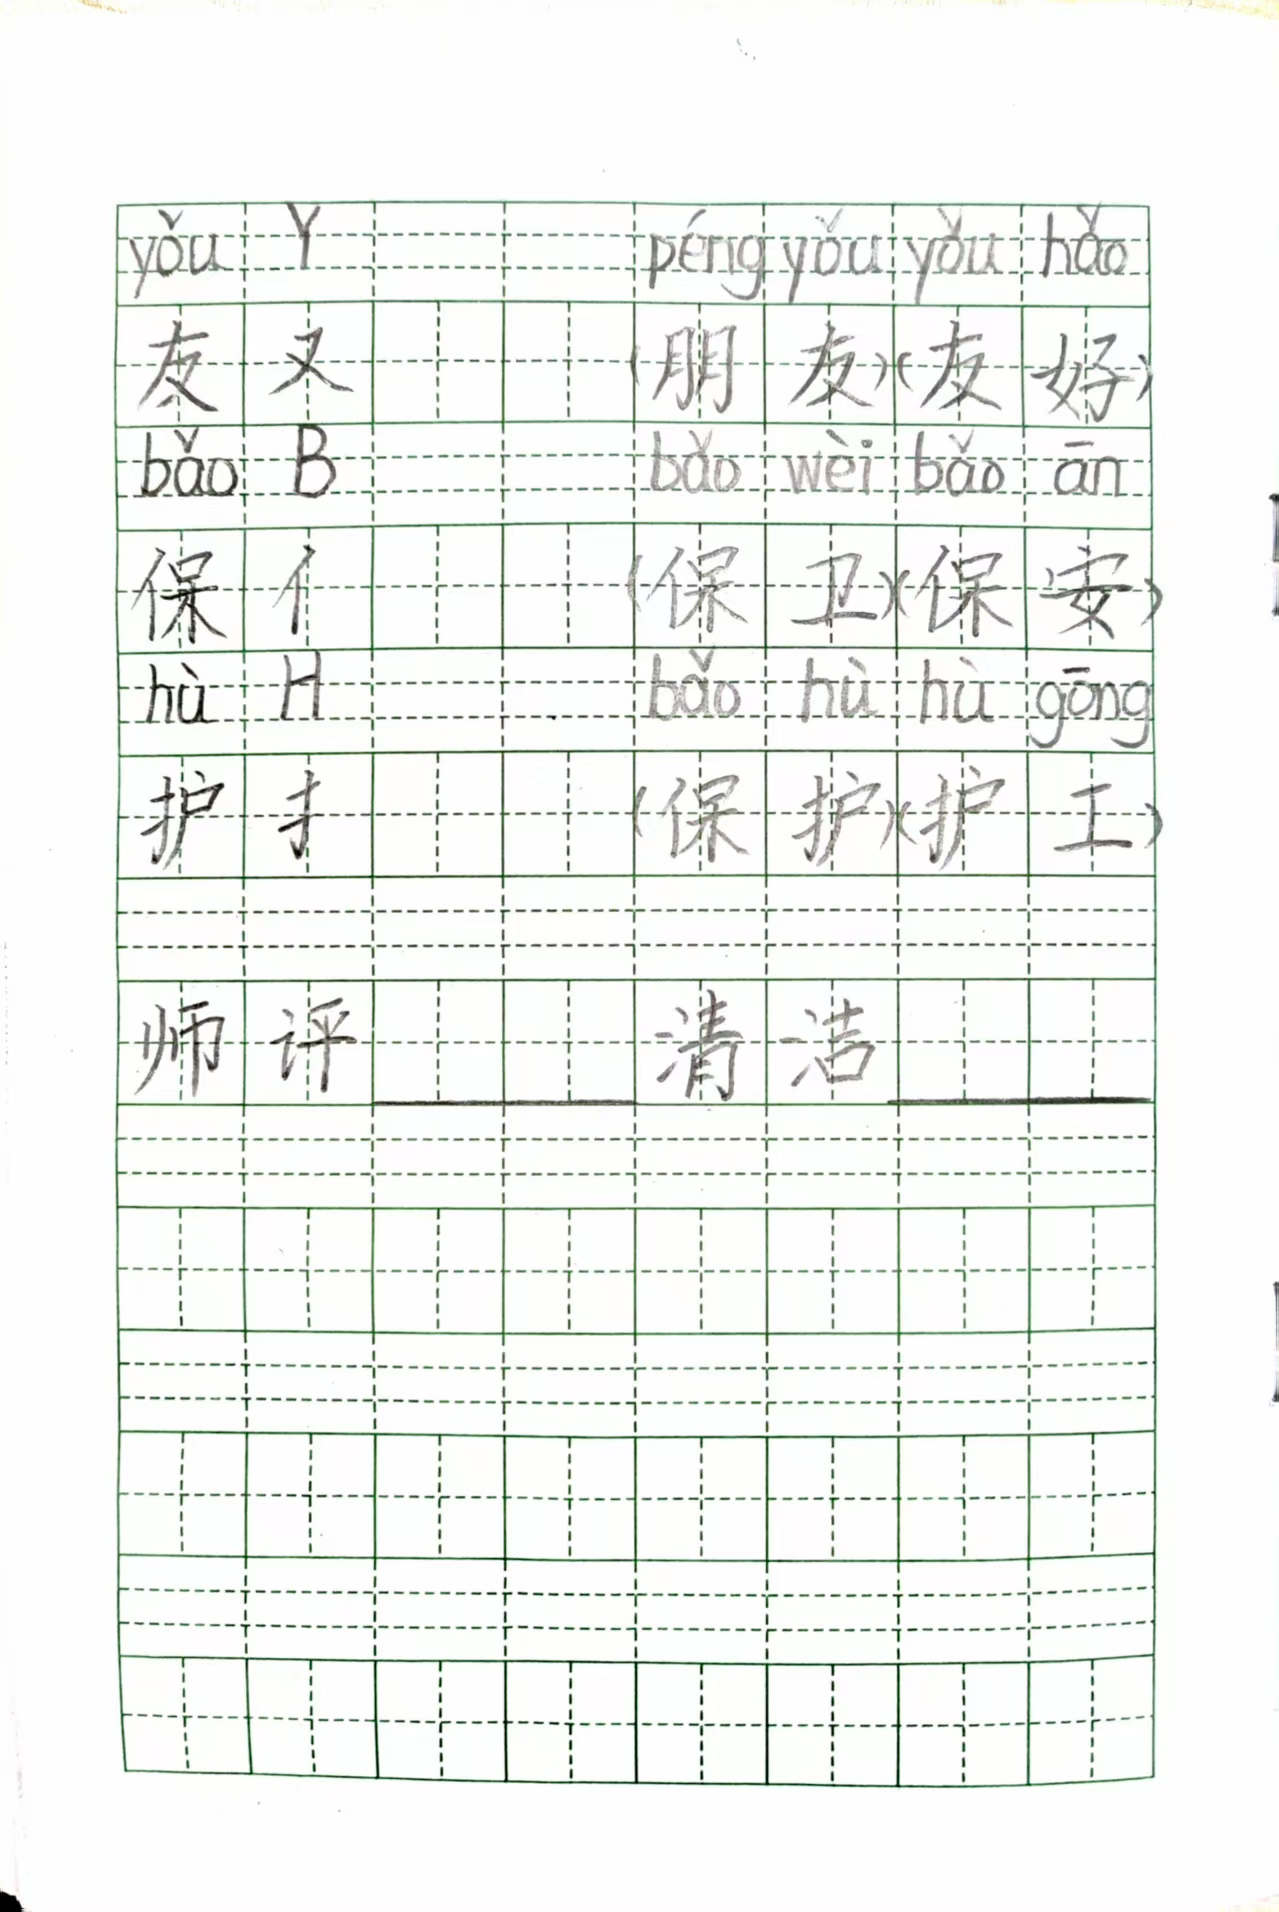 yǒu Y péng yǒu yǒu hǎo
友 又 (朋 友)(友 好)
bǎo B bǎo wèi bǎo ān
保 亻 (保 卫)(保 安)
hù H bǎo hù hù gōng
护 扌 (保 护)(护 工)
师 评 清 洁